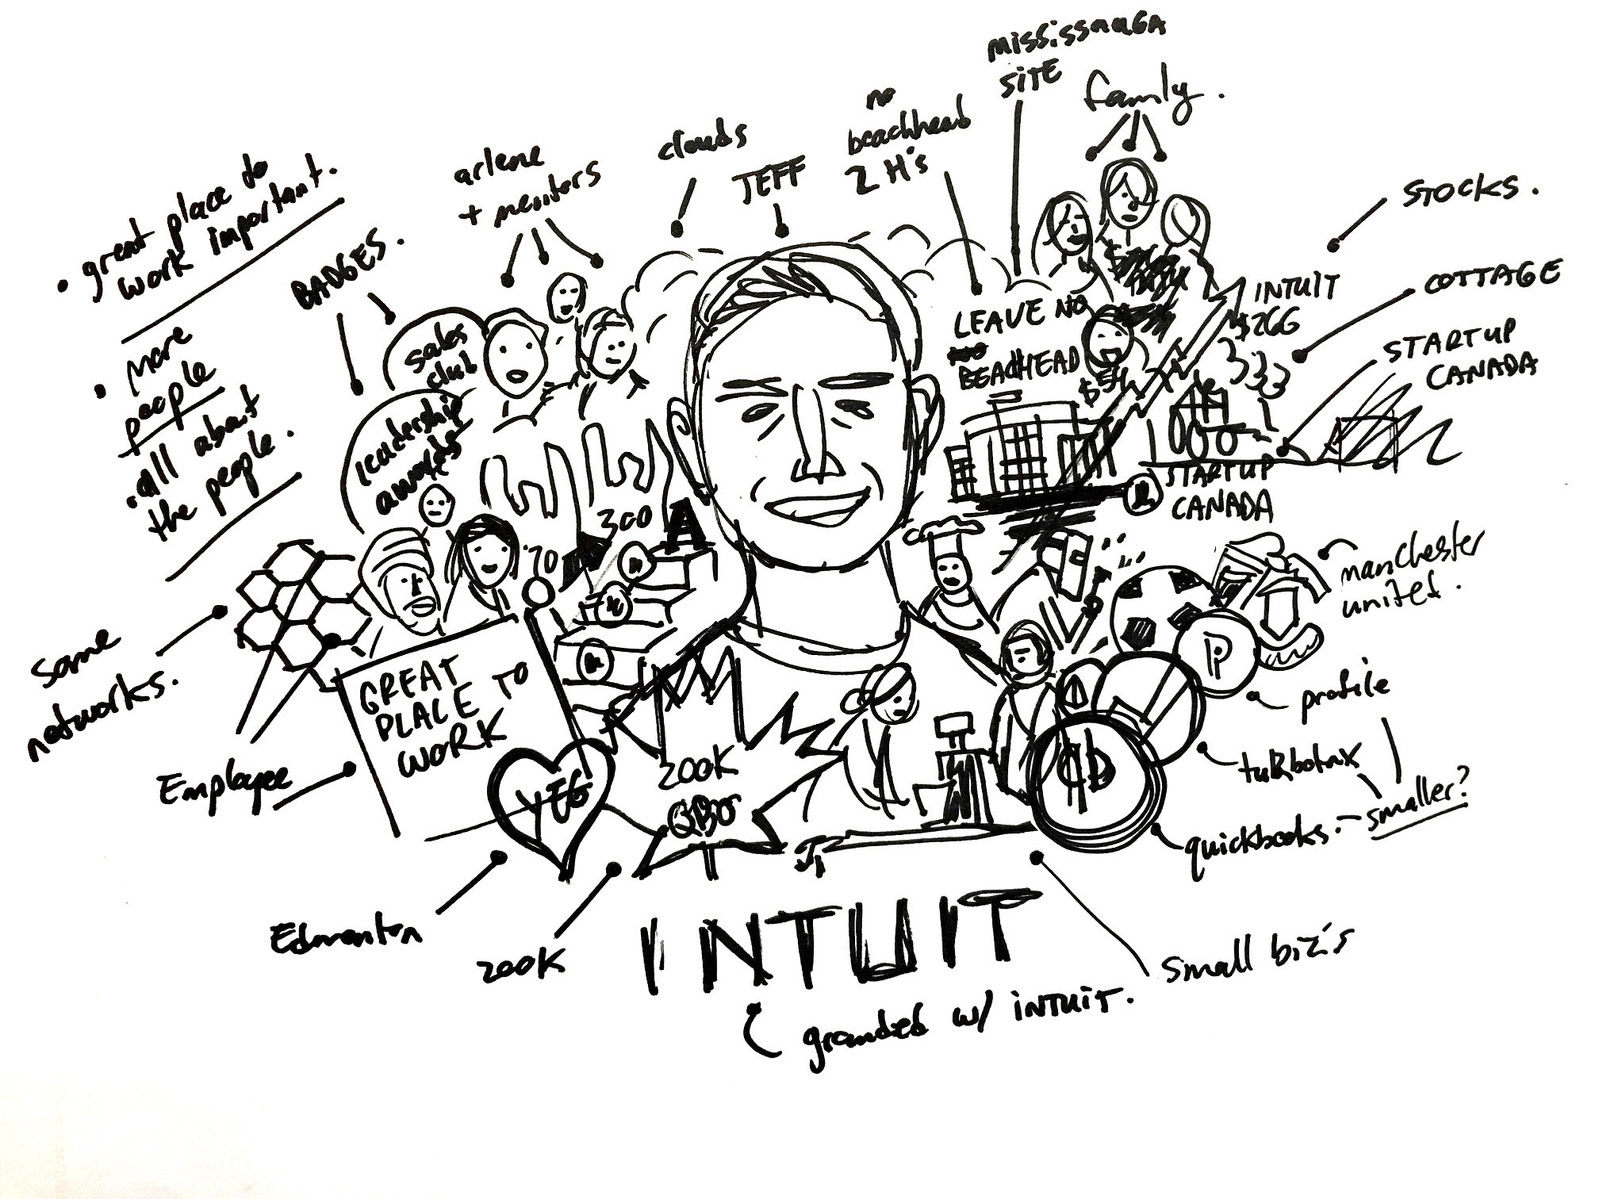 mississauga
SITE
family.
no
beachhead
2 H's
clouds
JEFF
arlene
+ mentors
• great place to
work important.
BADGES.
• more
people
• all about
the people.
STOCKS.
COTTAGE
STARTUP
CANADA
INTUIT
$266
LEAVE NO
BEACHHEAD
sales
club
leadership
awards
300
'70
A
STARTUP
CANADA
manchester
united.
some
networks.
Employee
GREAT
PLACE TO
WORK
YEG
200K
QBO
P
profile
turbotax
smaller?
quickbooks.
Edmonton
200K
INTUIT
small biz's
grounded w/ INTUIT.